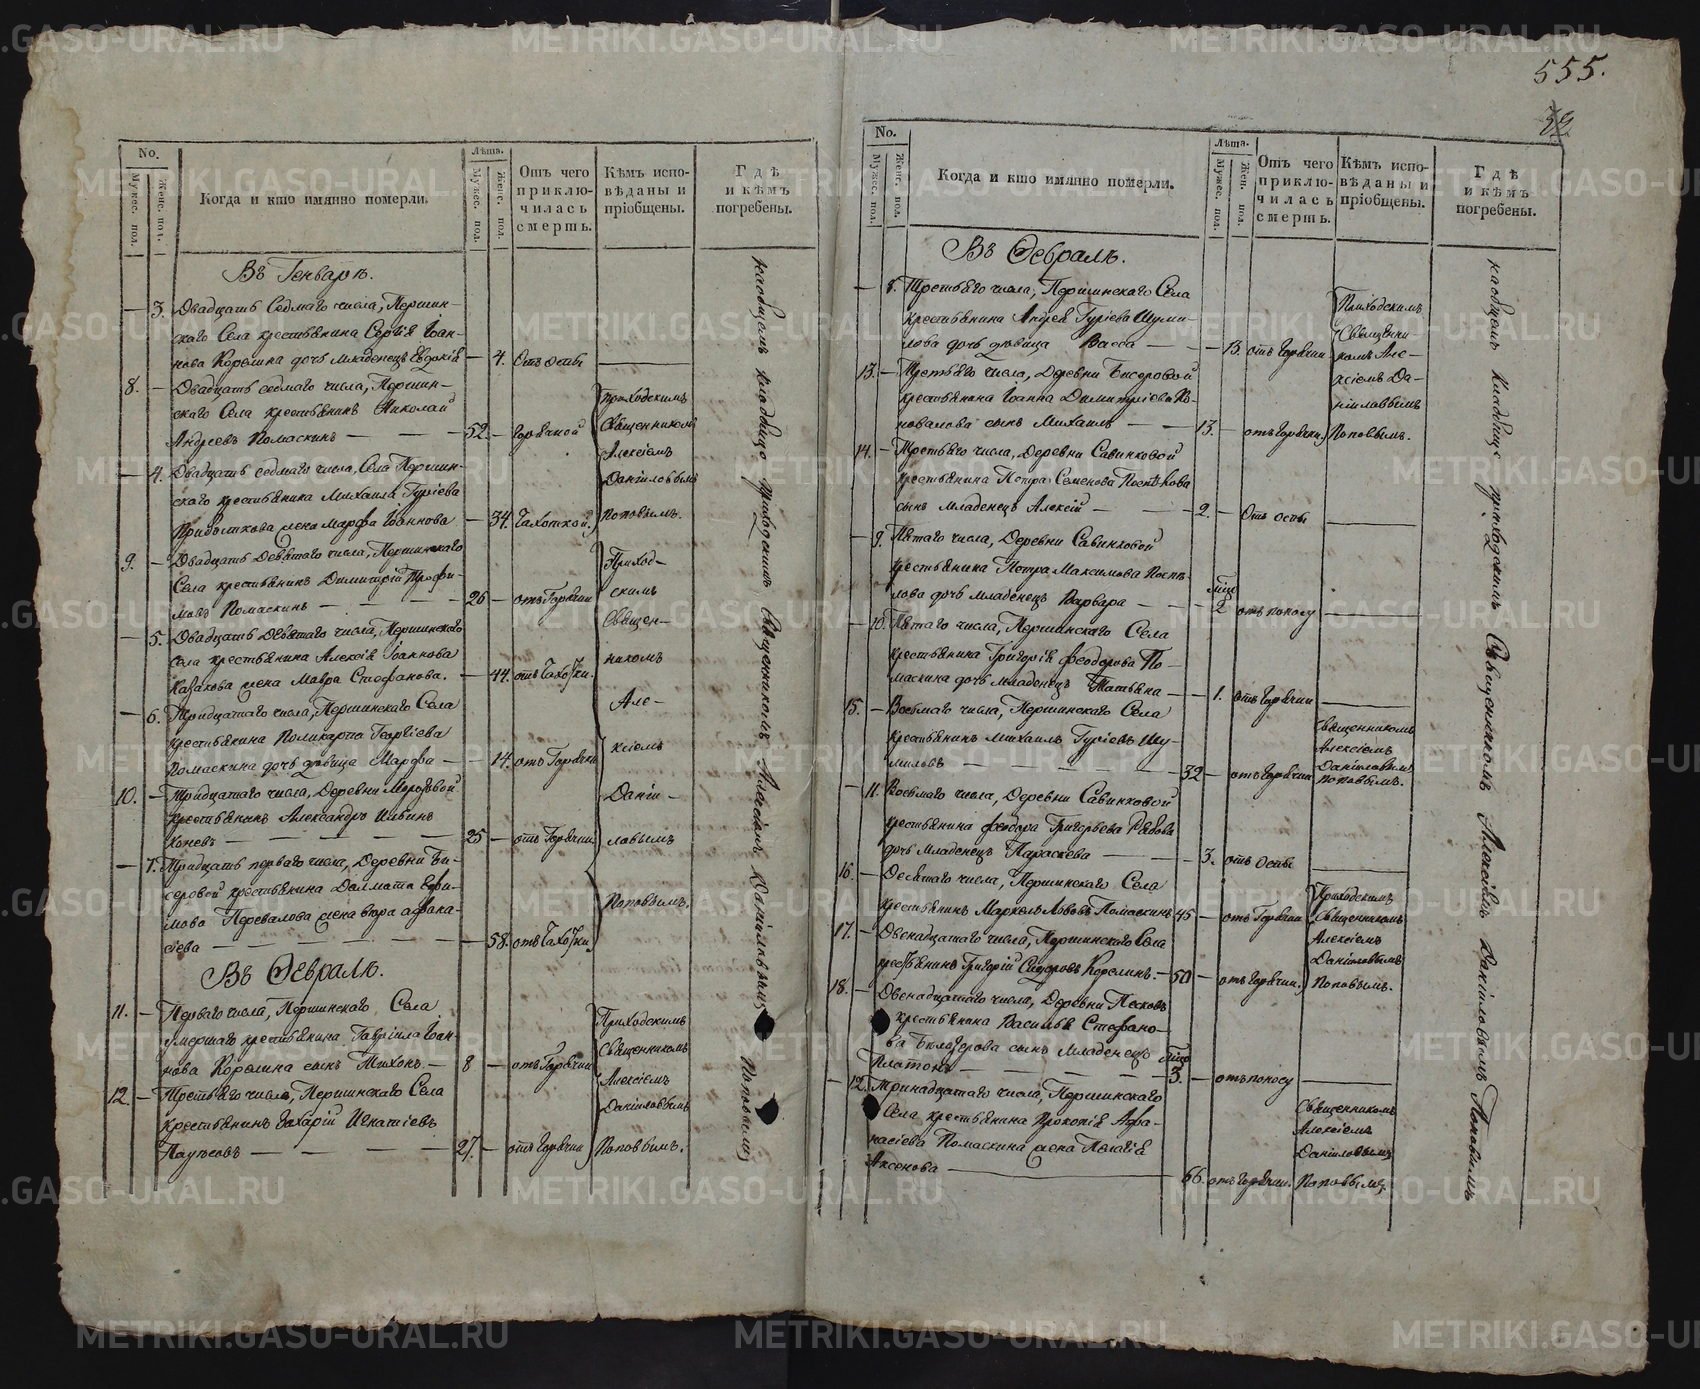 555.
No.
Мужес. пол.
Женс. пол.
Когда и кто имянно померли.
Лѣта.
Мужес. пол.
Женс. пол.
Отъ чего
приклю-
чилась
смерть.
Кѣмъ испо-
вѣданы и
пріобщены.
Гдѣ
и кѣмъ
погребены.
Въ Генварѣ.
— 3. Двадцать Седмаго числа, Першин-
скаго Села крестьянина Сергія Іоан-
нова Корелина дочь младенецъ Евдокія — 4. Отъ оспы
8. — Двадцать седмаго числа, Першин-
скаго Села крестьянинъ Николай
Андреевъ Помаскинъ — 52. — Горячкой
Приходскимъ
Священникомъ
Алексіемъ
Даніиловымъ
Поповымъ.
— 4. Двадцать седмаго числа, Села Першин-
скаго крестьянина Михаила Гуріева
жена Марфа Іоаннова — 34. Чахоткой.
9. — Двадцать Девятаго числа, Першинскаго
Села крестьянинъ Димитрій Трофи-
мовъ Помаскинъ — 26 — отъ Горячки
Приход-
скимъ
Священ-
никомъ
Але-
ксіемъ
Даніи-
ловымъ
Поповымъ.
— 5. Двадцать Девятаго числа, Першинскаго
села крестьянина Алексія Іоаннова
Казакова жена Мавра Стефанова. — 44. отъ Чахотки.
— 6. Тридцатаго числа, Першинскаго Села
крестьянина Поликарпа Георгіева
Помаскина дочь дѣвица Марфа — 14. отъ Горячки
10. — Тридцатаго числа, Деревни
крестьянинъ Александръ Ильинъ
Коневъ — 25 — отъ Горячки.
— 7. Тридцать перваго числа, Деревни Би-
серовой крестьянина Далмата Ефи-
мова Перевалова жена Ѳеора Афана-
сіева — 58. отъ Чахотки
Въ Февралѣ.
11. — Перваго числа, Першинскаго Села
умершаго крестьянина Гавріила Іоан-
нова Корелина сынъ Тихонъ. — 8 — отъ Горячки
Приходскимъ
Священникомъ
Алексіемъ
Даніиловымъ
Поповымъ.
12. — Третьяго числа, Першинскаго Села
крестьянинъ Захарій Игнатіевъ
Паутовъ — 27. — отъ Горячки
на общемъ кладбищѣ приходскимъ Священникомъ Алексіемъ Даніиловымъ Поповымъ
No.
Мужес. пол.
Женс. пол.
Когда и кто имянно померли.
Лѣта.
Мужес. пол.
Жен. пол.
Отъ чего
приклю-
чилась
смерть.
Кѣмъ испо-
вѣданы и
пріобщены.
Гдѣ
и кѣмъ
погребены.
Въ Февралѣ.
— 8. Третьяго числа, Першинскаго Села
крестьянина Андрея Гуріева Шуми-
лова дочь дѣвица Васса — 13. отъ Горячки
Приходскимъ
Священни-
комъ Але-
ксіемъ Да-
ніиловымъ
Поповымъ.
13. — Третьяго числа, Деревни Бисеровой
крестьянина Іоанна Димитріева Ко-
новалова сынъ Михаилъ — 13. — отъ Горячки.
14. — Третьяго числа, Деревни Савинковой
крестьянина Петра Семенова Поспѣлова
сынъ младенецъ Алексій — 2. — Отъ оспы
— 9. Пятаго числа, Деревни Савинковой
крестьянина Петра Максимова Поспѣ-
лова дочь младенецъ Варвара — 2 отъ поносу
— 10. Пятаго числа, Першинскаго Села
крестьянина Григорія Феодорова По-
маскина дочь младенецъ Татьяна — 1. отъ Горячки
15. — Восьмаго числа, Першинскаго Села
крестьянинъ Михаилъ Гуріевъ Шу-
миловъ — 32 — отъ Горячки
Священникомъ
Алексіемъ
Даніиловымъ
Поповымъ.
— 11. Восьмаго числа, Деревни Савинковой
крестьянина Феодора Григорьева Рябова
дочь младенецъ Параскева — 3. отъ Оспы
16. — Десятаго числа, Першинскаго Села
крестьянинъ Маркелъ Львовъ Помаскинъ 45 — отъ Горячки
Приходскимъ
Священникомъ
Алексіемъ
Даніиловымъ
Поповымъ.
17. — Двенадцатаго числа, Першинскаго Села
крестьянинъ Григорій Сидоровъ Корелинъ. — 50 — отъ Горячки.
18. — Двенадцатаго числа, Деревни Песковъ
крестьянина Василья Стефано-
ва Бѣлозерова сынъ младенецъ
Платонъ — 3. — отъ поносу
— 12. Тринадцатаго числа, Першинскаго
Села крестьянина Прокопія Афа-
насіева Помаскина жена Пелагія
Аксенова — 66. отъ Горячки.
Священникомъ
Алексіемъ
Даніиловымъ
Поповымъ.
на общемъ кладбищѣ приходскимъ Священникомъ Алексіемъ Даніиловымъ Поповымъ
METRIKI.GASO-URAL.RU